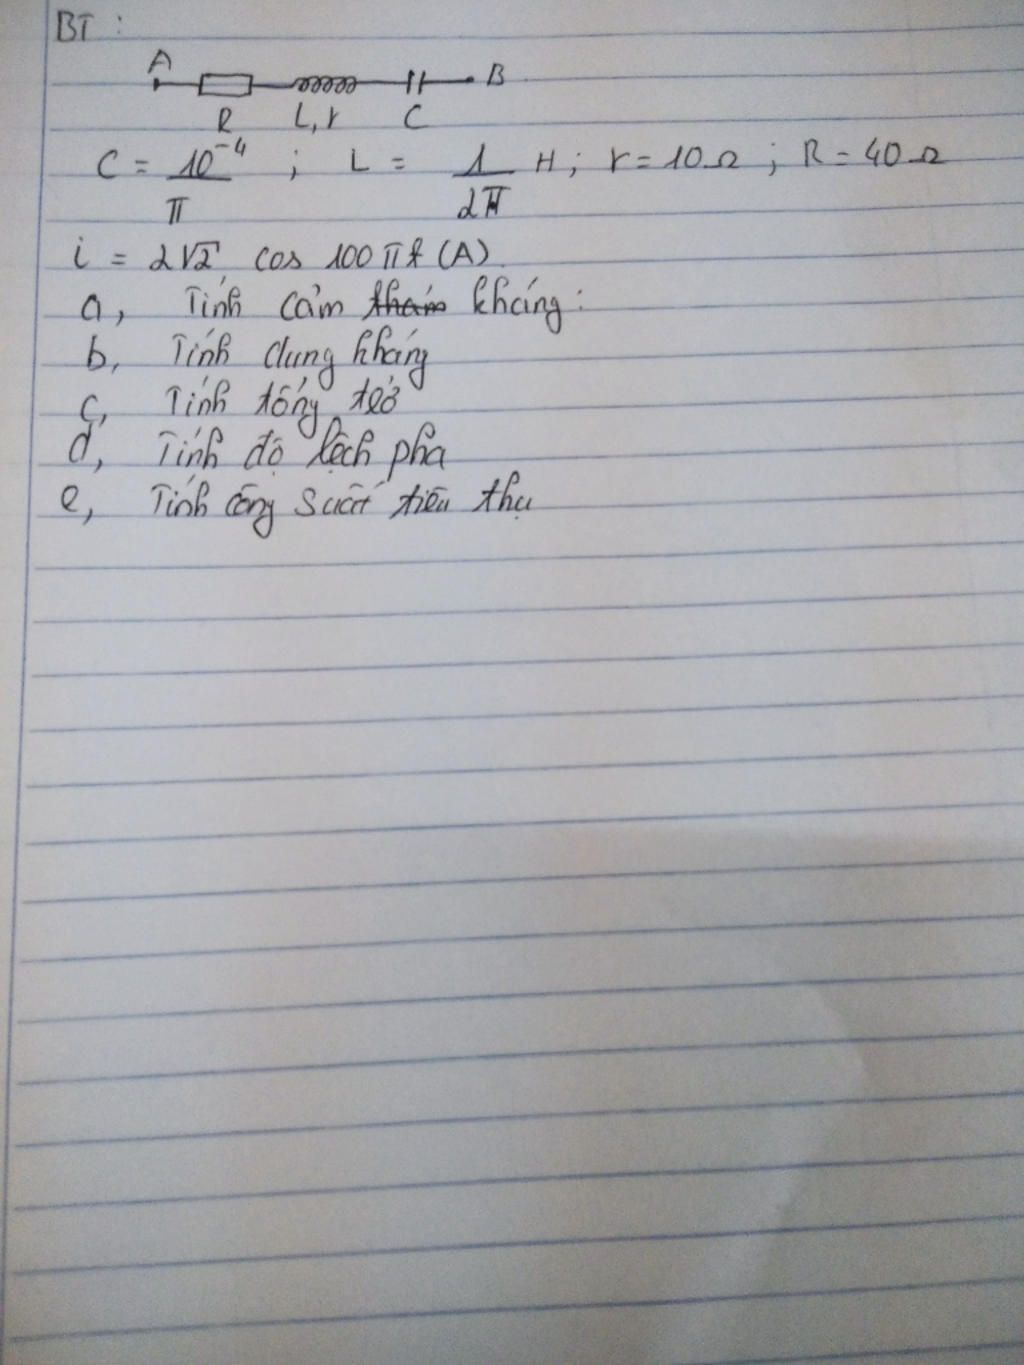 BT :
A B
R L,r C
C = 10⁻⁴/π ; L = 1/2π H ; r = 10Ω ; R = 40Ω
i = 2√2 cos 100πt (A)
a, Tính cảm kháng :
b, Tính dung kháng
c, Tính tổng trở
d, Tính độ lệch pha
e, Tính công suất tiêu thụ